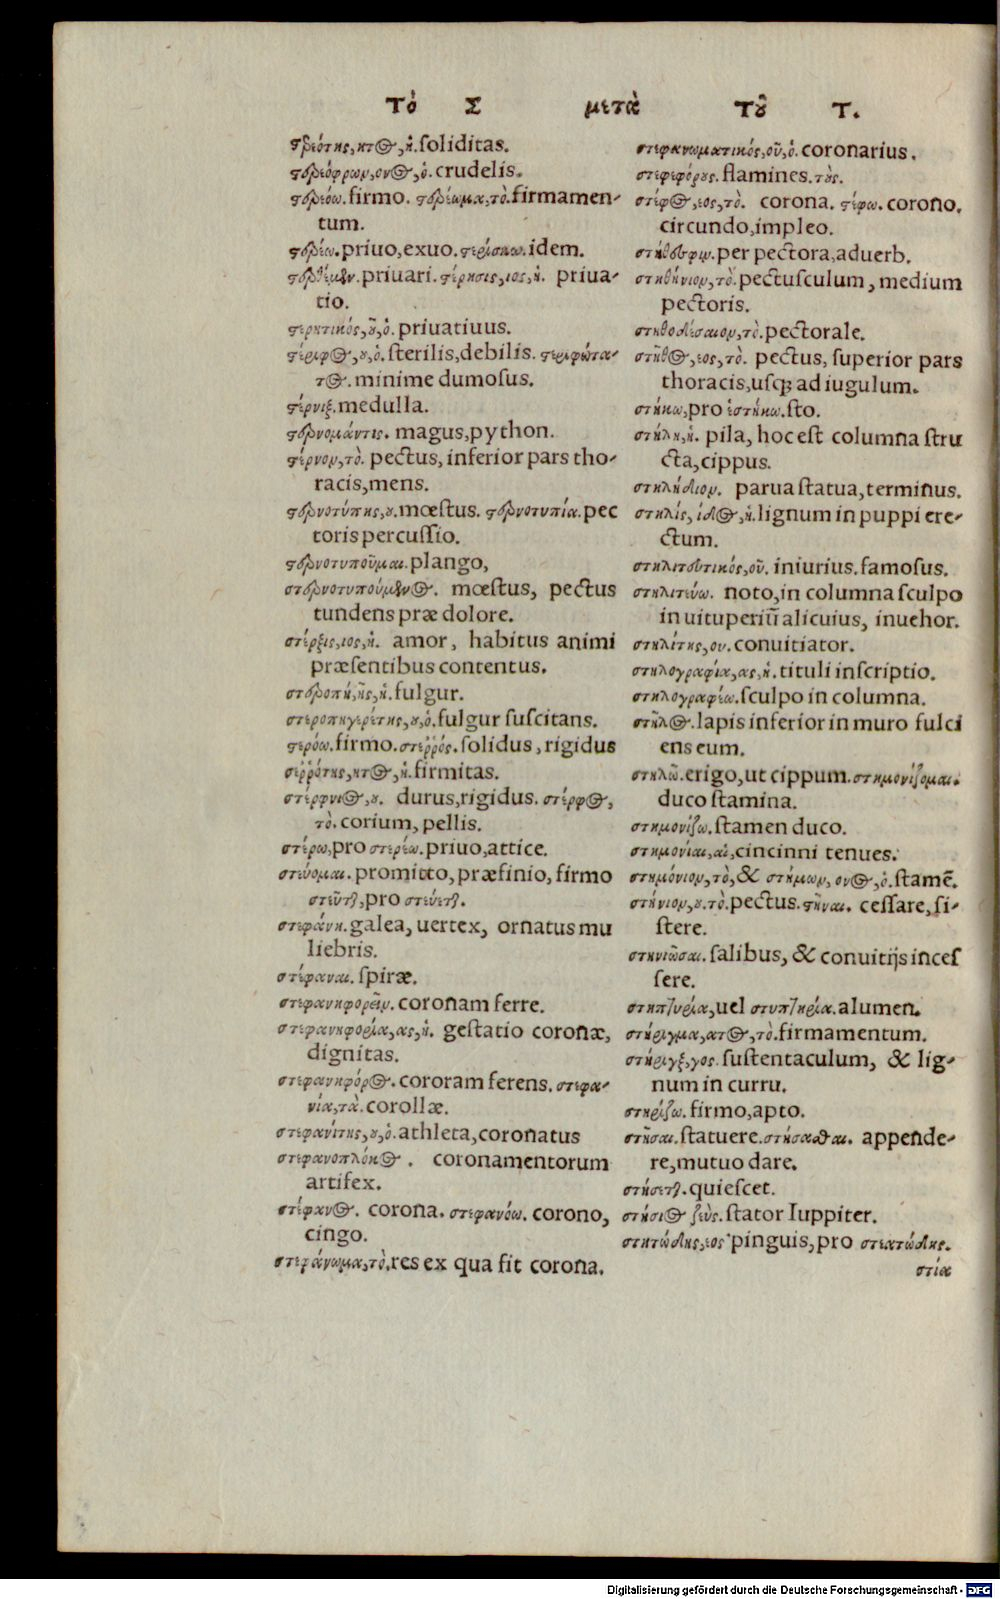 Τὸ Σ μετὰ τοῦ Τ.
στερεότης, ητος, ἡ. soliditas.
στερεόφρων, ονος, ὁ. crudelis.
στερεόω. firmo. στερέωμα, τὸ. firmamen-
tum.
στερέω. priuo, exuo. στερίσκω. idem.
στερέσθαι. priuari. στέρησις, ιος, ἡ. priua-
tio.
στερητικός, οῦ, ὁ. priuatiuus.
στέριφος, ου, ὁ. sterilis, debilis. στεριφώτα-
τος. minime dumosus.
στέρνιξ. medulla.
στερνομάντις. magus, python.
στέρνον, τὸ. pectus, inferior pars tho-
racis, mens.
στερνοτύπης, ου. mœstus. στερνοτυπία. pec
toris percussio.
στερνοτυποῦμαι. plango,
στερνοτυπούμενος. mœstus, pectus
tundens præ dolore.
στέρξις, ιος, ἡ. amor, habitus animi
præsentibus contentus.
στεροπή, ῆς, ἡ. fulgur.
στεροπηγερέτης, ου, ὁ. fulgur suscitans.
στερόω. firmo. στεῤῥός. solidus, rigidus
στεῤῥότης, ητος, ἡ. firmitas.
στέρφνιος, ου. durus, rigidus. στέρφος,
τὸ. corium, pellis.
στέρω, pro στερέω. priuo, attice.
στεύομαι. promitto, præfinio, firmo
στεῦται, pro στεύεται.
στεφάνη. galea, uertex, ornatus mu
liebris.
στέφαναι. spiræ.
στεφανηφορεῖν. coronam ferre.
στεφανηφορία, ας, ἡ. gestatio coronæ,
dignitas.
στεφανηφόρος. cororam ferens. στεφα-
νία, τὰ. corollæ.
στεφανίτης, ου, ὁ. athleta, coronatus
στεφανοπλόκος. coronamentorum
artifex.
στέφανος. corona. στεφανόω. corono,
cingo.
στεφάνωμα, τὸ. res ex qua fit corona.
στεφανωματικός, οῦ, ὁ. coronarius.
στεφεφόρους. flamines. τοὺς.
στέφος, εος, τὸ. corona. στέφω. corono,
circundo, impleo.
στήθεσφιν. per pectora, aduerb.
στηθήνιον, τὸ. pectusculum, medium
pectoris.
στηθοδέσαιον, τὸ. pectorale.
στῆθος, εος, τὸ. pectus, superior pars
thoracis, usq; ad iugulum.
στήκω, pro ἱστήκω. sto.
στήλη, ἡ. pila, hoc est columna stru
cta, cippus.
στηλήδιον. parua statua, terminus.
στηλίς, ίδος, ἡ. lignum in puppi ere-
ctum.
στηλιτευτικός, οῦ. iniurius. famosus.
στηλιτεύω. noto, in columna sculpo
in uituperiũ alicuius, inuehor.
στηλίτης, ου. conuitiator.
στηλογραφία, ας, ἡ. tituli inscriptio.
στηλογραφέω. sculpo in columna.
στῆλος. lapis inferior in muro fulci
ens eum.
στηλῶ. erigo, ut cippum. στημονίζομαι.
duco stamina.
στημονίζω. stamen duco.
στημονίαι, αἱ, cincinni tenues.
στημόνιον, τὸ, & στήμων, ονος, ὁ. stamẽ.
στήνιον, ου. τὸ. pectus. στῆναι. cessare, si-
stere.
στηνιῶσαι. salibus, & conuitijs inces
sere.
στηπτυρία, uel στυπτηρία. alumen.
στήριγμα, ατος, τὸ. firmamentum.
στήριγξ, γος. sustentaculum, & lig-
num in curru.
στηρίζω. firmo, apto.
στῆσαι. statuere. στήσασθαι. appende-
re, mutuo dare.
στήσεται. quiescet.
στήσιος ζεὺς. stator Iuppiter.
στητώδης, εος pinguis, pro στεατώδης.
στία
Digitalisierung gefördert durch die Deutsche Forschungsgemeinschaft - DFG